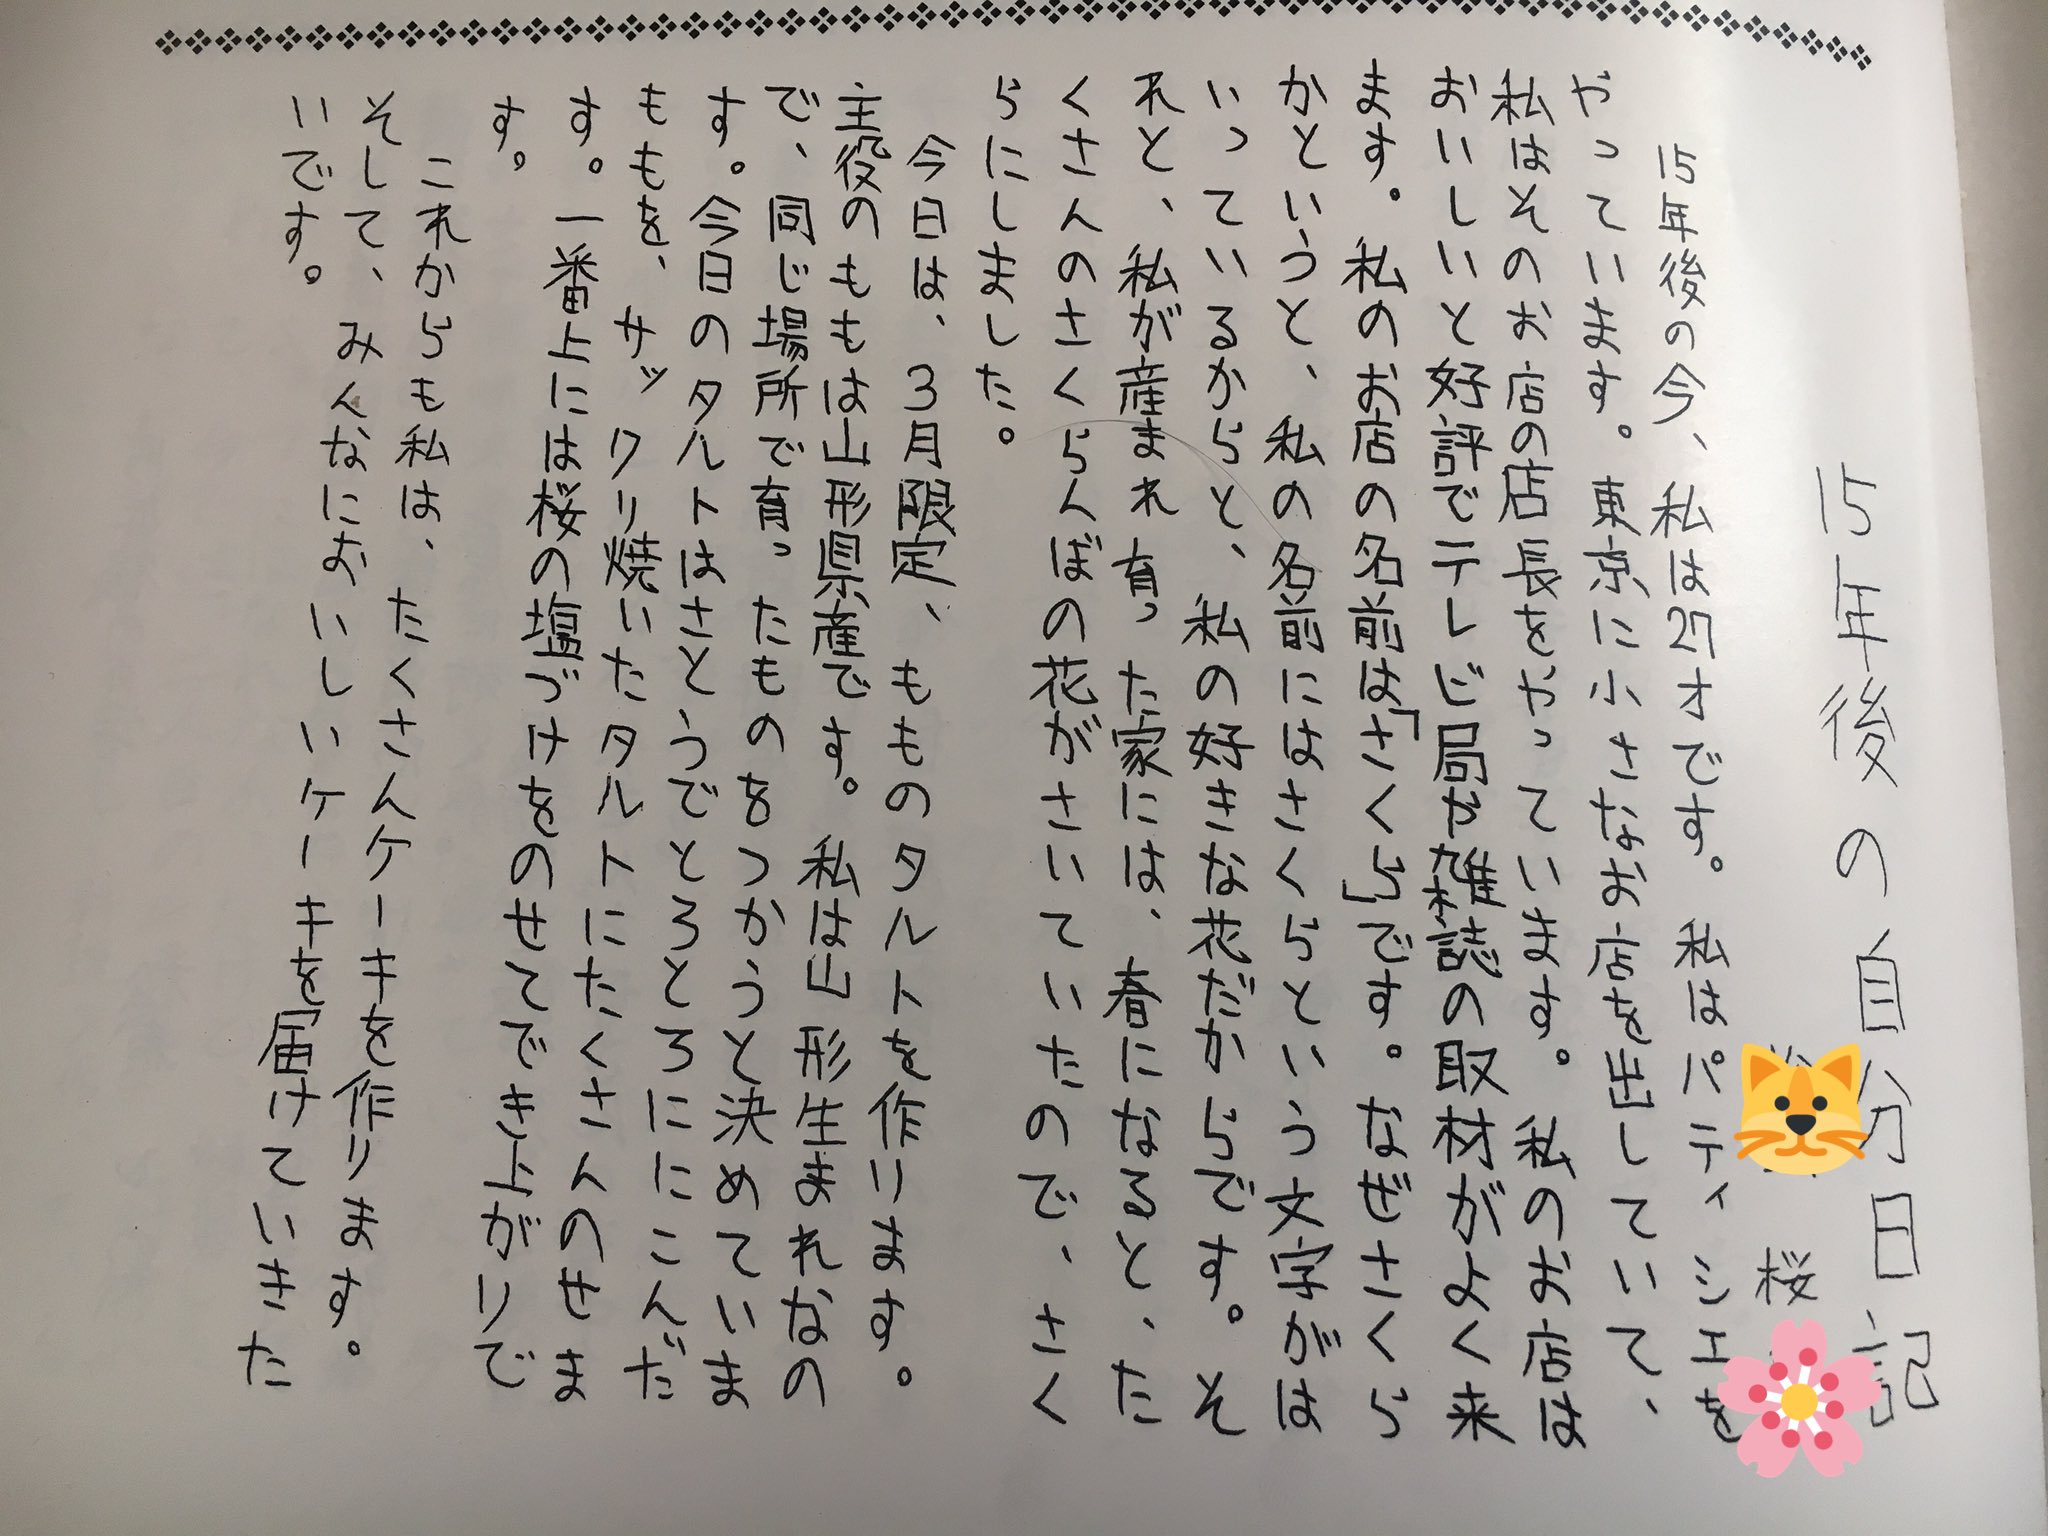 15年後の自分日記
桜
15年後の今、私は27才です。私はパティシエを
やっています。東京に小さなお店を出していて、
私はそのお店の店長をやっています。私のお店は
おいしいと好評でテレビ局や雑誌の取材がよく来
ます。私のお店の名前は「さくら」です。なぜさくら
かというと、私の名前にはさくらという文字がは
いっているからと、私の好きな花だからです。そ
れと、私が産まれ育った家には、春になると、た
くさんのさくらんぼの花がさいていたので、さく
らにしました。
今日は、3月限定、もものタルトを作ります。
主役のももは山形県産です。私は山形生まれなの
で、同じ場所で育ったものをつかうと決めていま
す。今日のタルトはさとうでとろとろににこんだ
ももを、サックリ焼いたタルトにたくさんのせま
す。一番上には桜の塩づけをのせてでき上がりで
す。
これからも私は、たくさんケーキを作ります。
そして、みんなにおいしいケーキを届けていきた
いです。